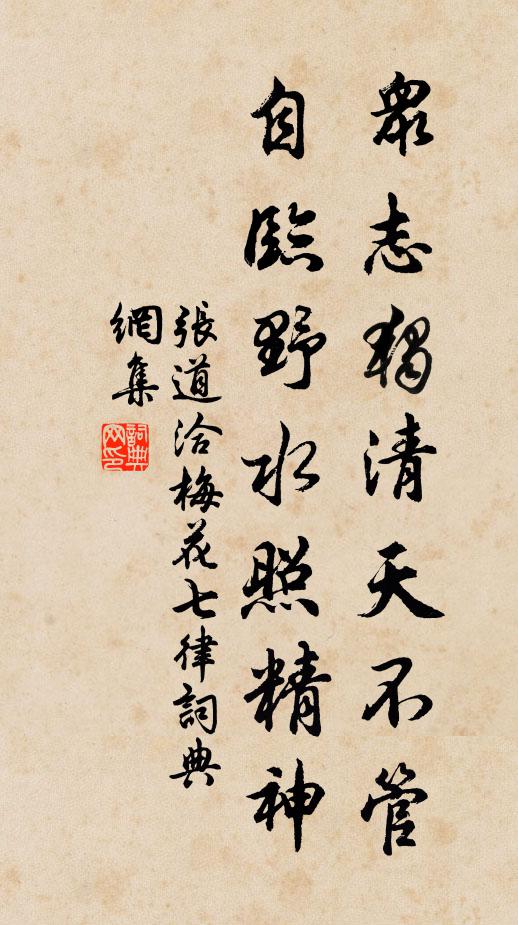 眾志獨清天不管
自臨野水照精神
張道洽梅花七律詞典
網集
詞典
网印